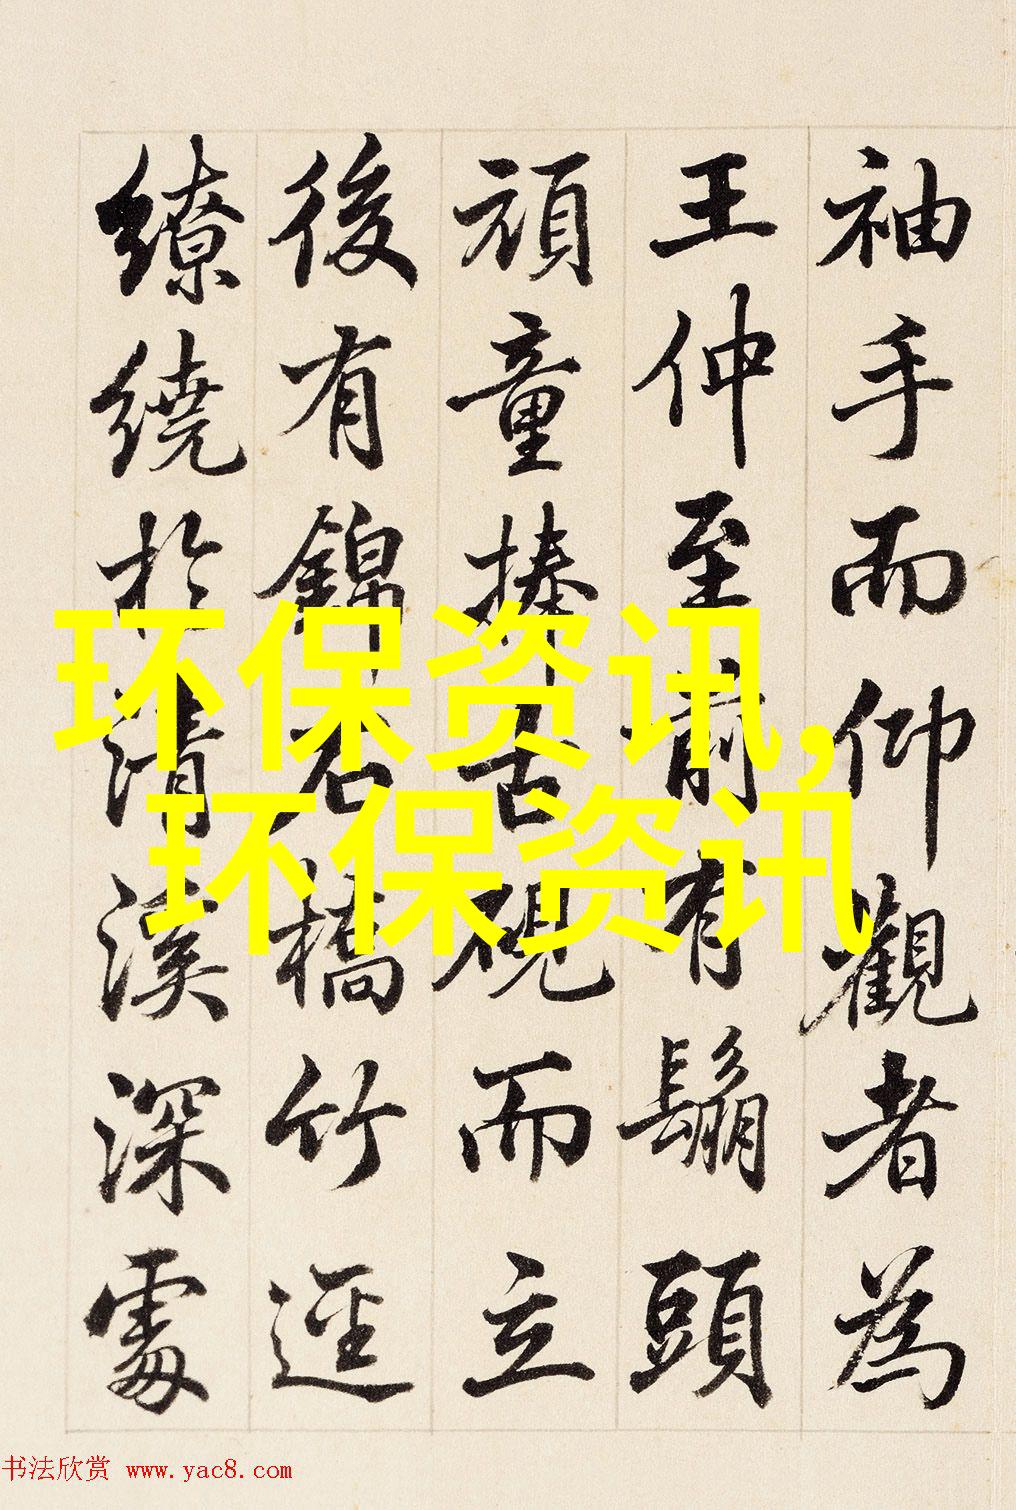 袖手而仰觀者為
王仲至前有鬅頭
頑童捧古硯而立
後有錦石橋竹逕
繚繞於清溪深處
环保资讯,
环保资讯
书法欣赏 www.yac8.com